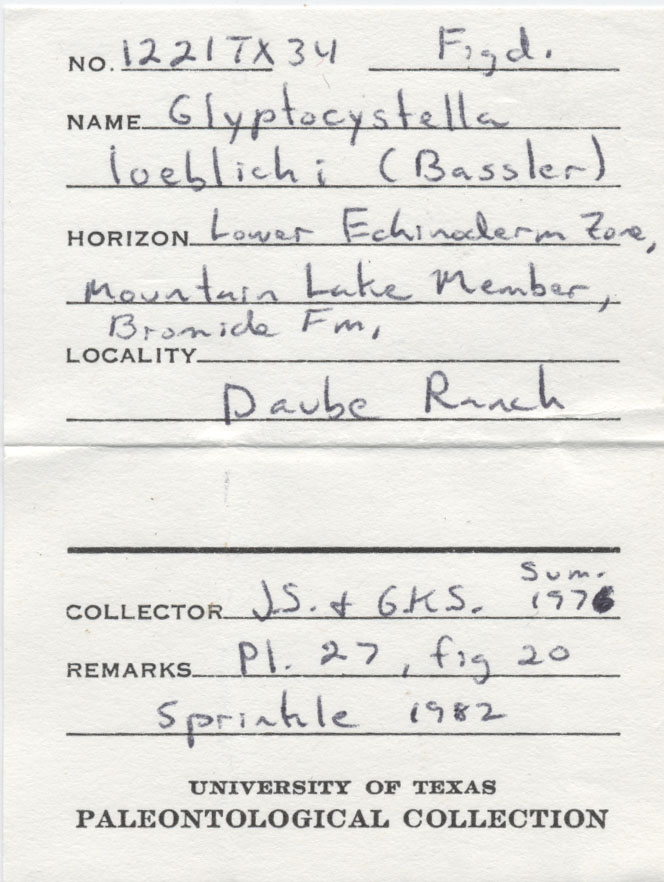 NO. 1221TX34 Figd.
NAME Glyptocystella
loeblichi (Bassler)
HORIZON Lower Echinoderm Zone,
Mountain Lake Member,
Bromide Fm,
LOCALITY
Daube Ranch
Sum.
COLLECTOR J.S. & G.K.S. 1976
REMARKS Pl. 27, fig 20
Sprinkle 1982
UNIVERSITY OF TEXAS
PALEONTOLOGICAL COLLECTION